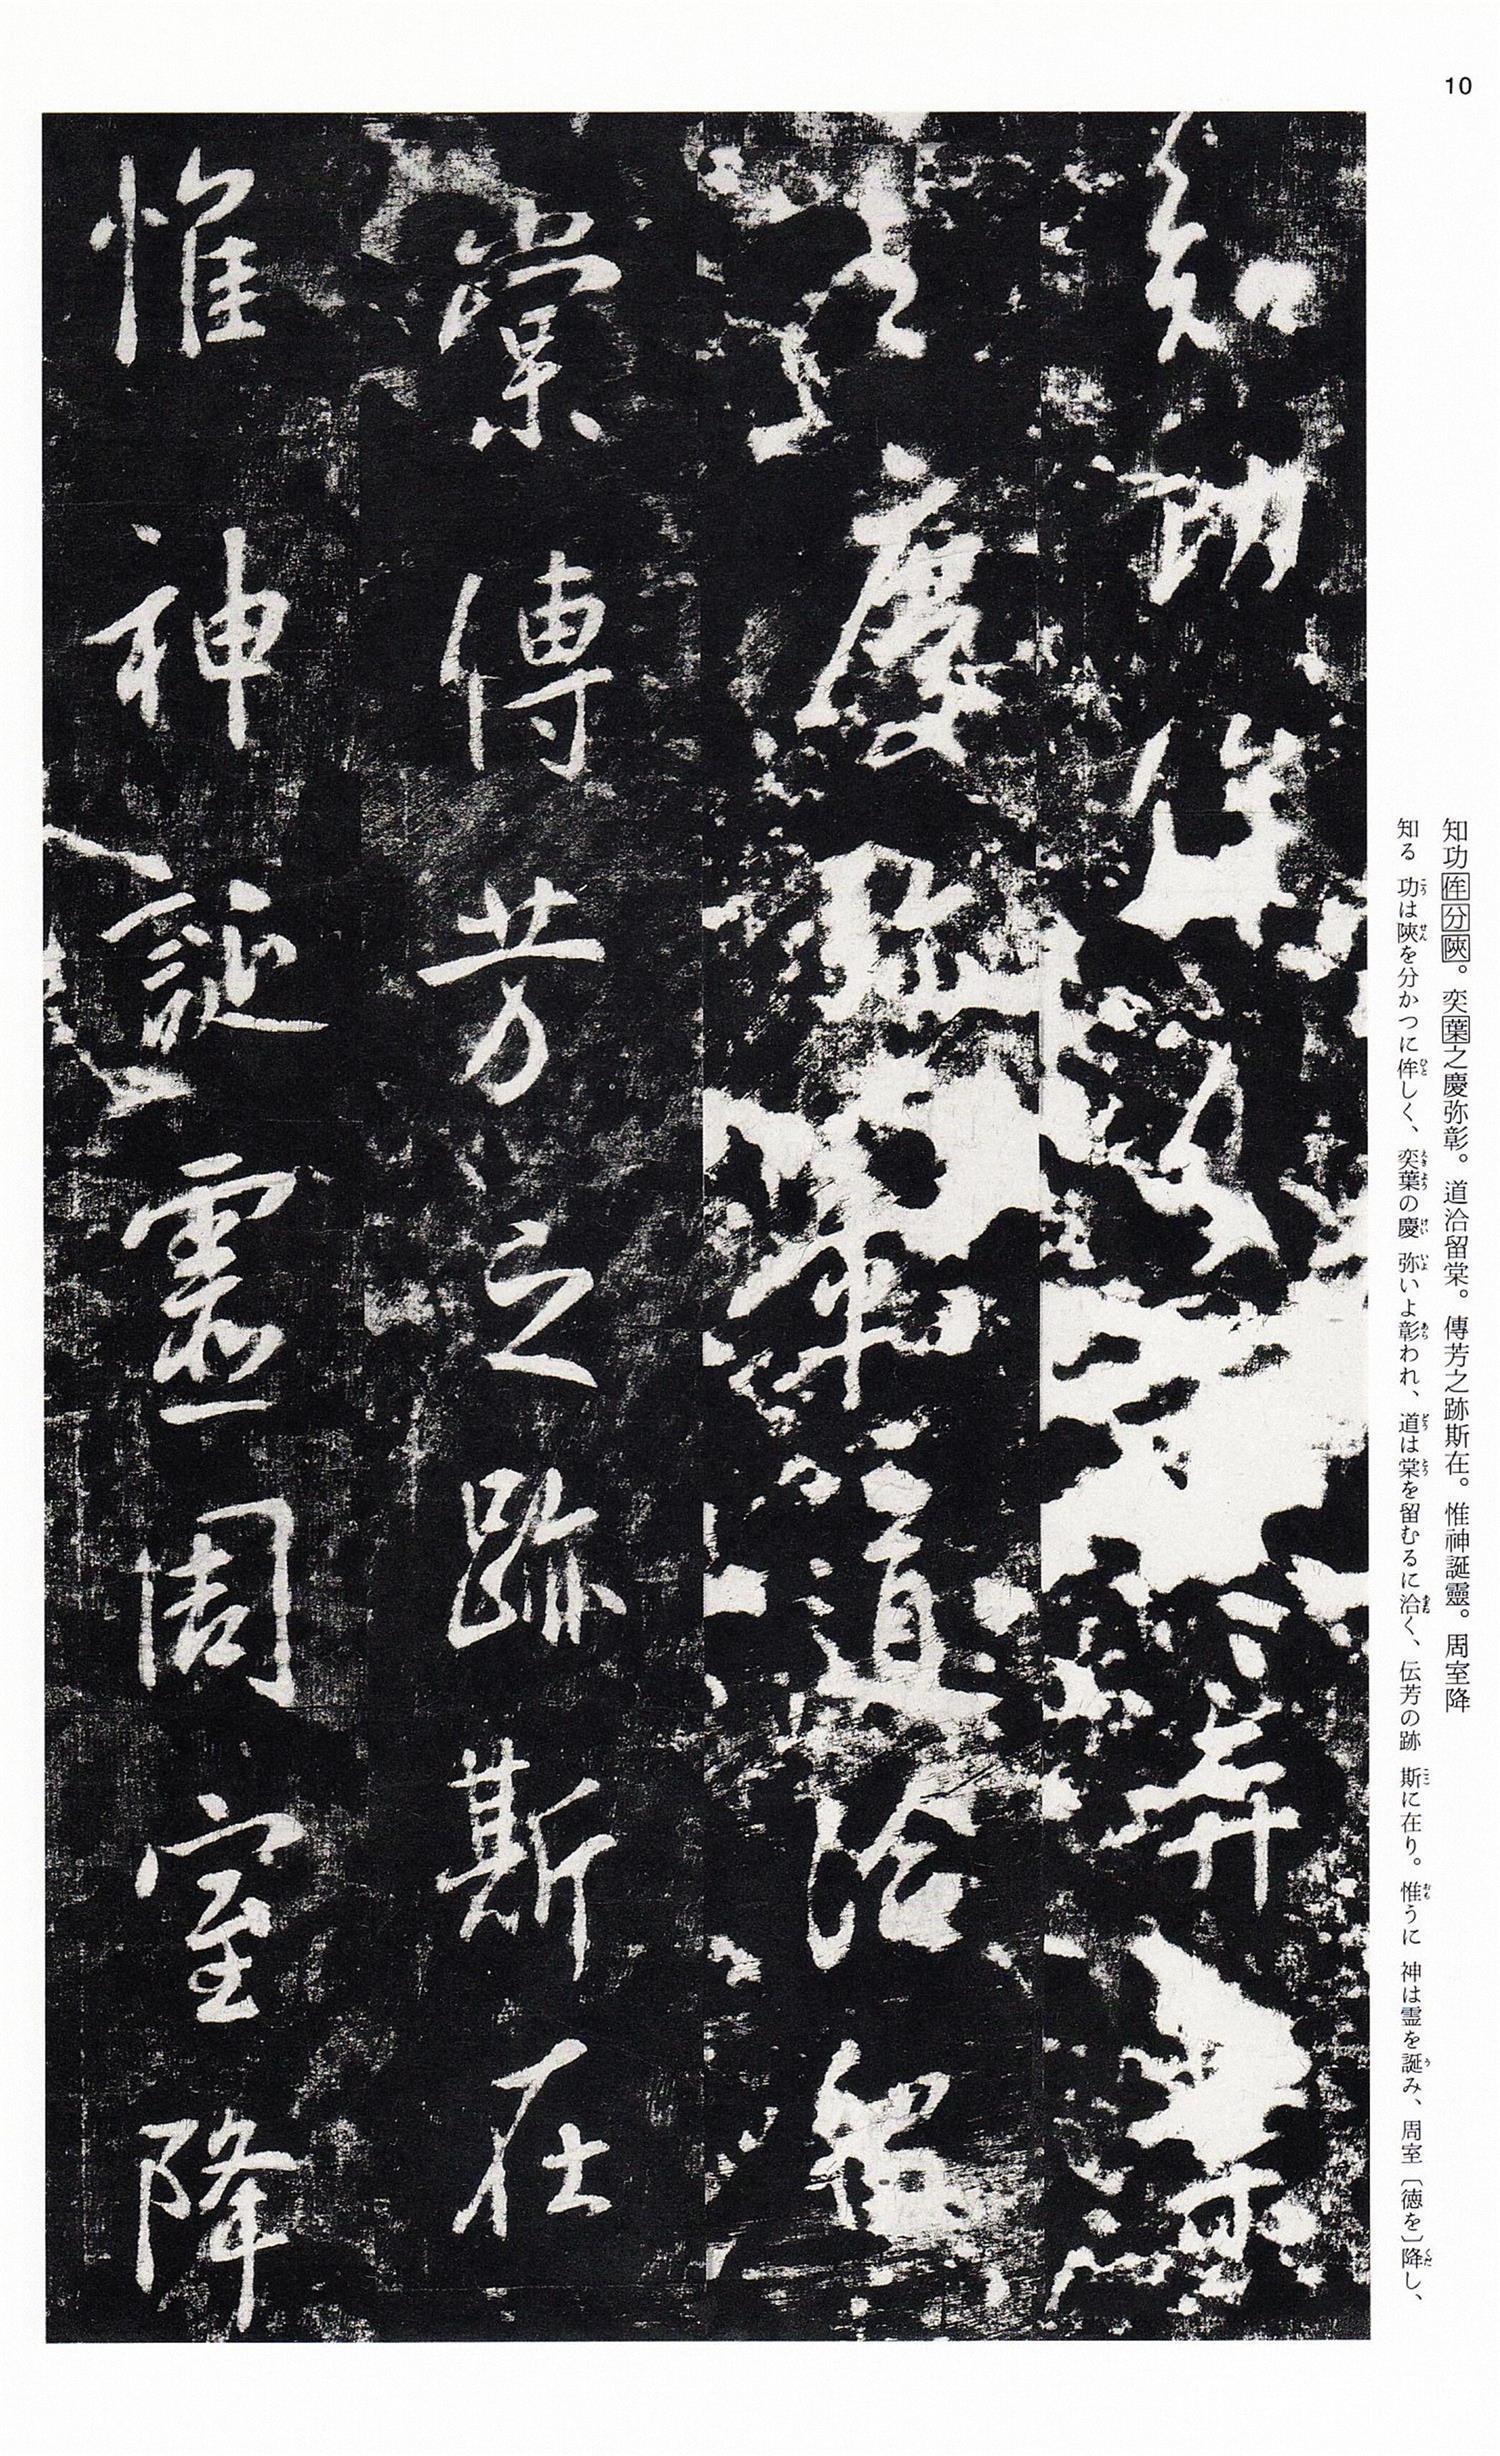 10
知功侔分陝。奕葉之慶弥彰。道洽留棠。傳芳之跡斯在。惟神誕靈。周室降
知る 功は陝を分かつに侔しく、奕葉の慶 弥いよ彰われ、道は棠を留むるに洽く、伝芳の跡 斯に在り。惟うに 神は霊を誕み、周室〔徳を〕降し、
知功侔分陝奕葉
之慶弥彰道洽留
棠傳芳之跡斯在
惟神誕靈周室降